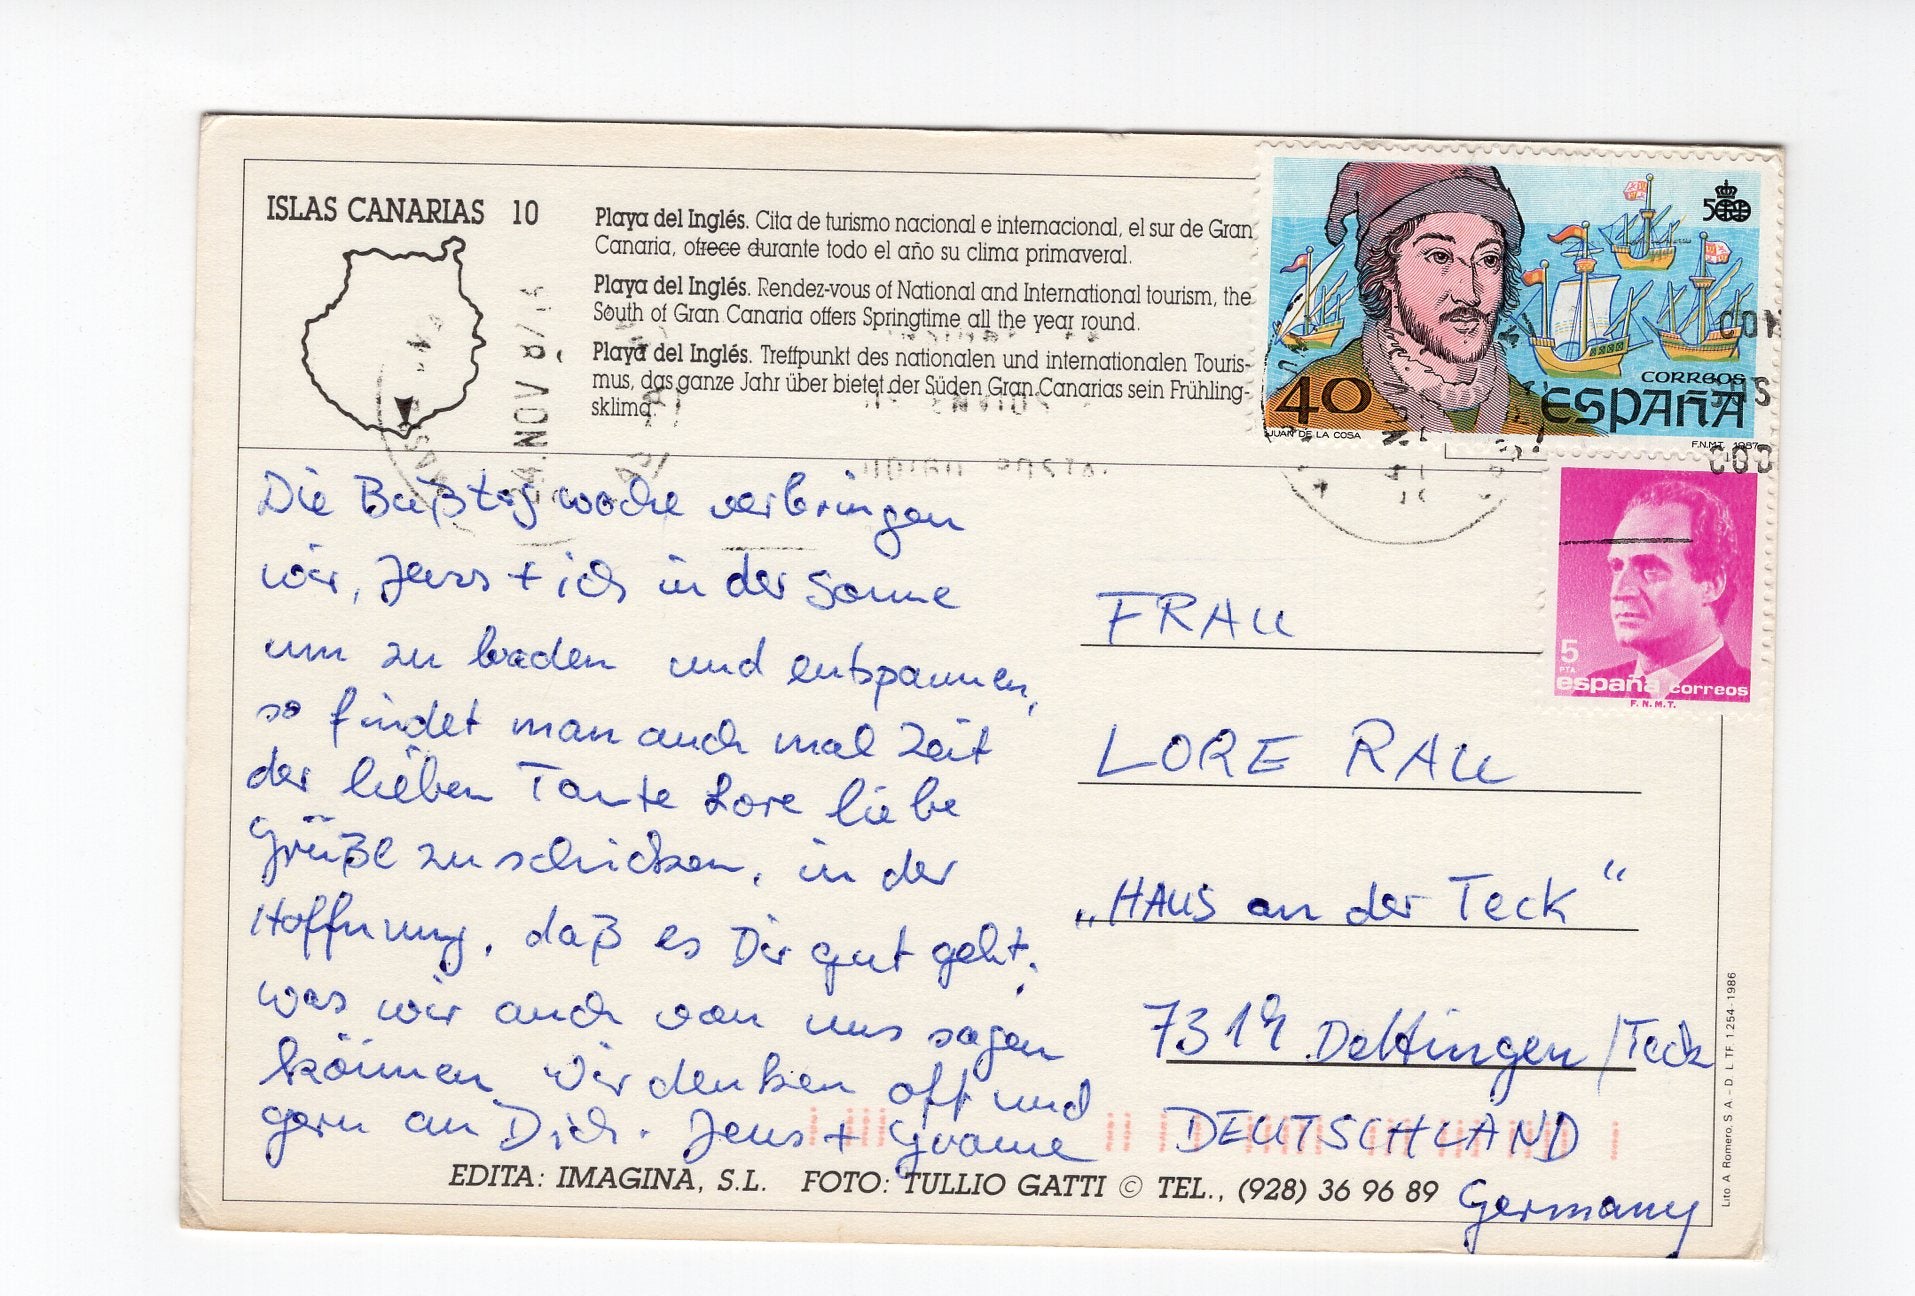 ISLAS CANARIAS 10
Playa del Inglés. Cita de turismo nacional e internacional, el sur de Gran
Canaria, ofrece durante todo el año su clima primaveral.
Playa del Inglés. Rendez-vous of National and International tourism, the
South of Gran Canaria offers Springtime all the year round.
Playa del Inglés. Treffpunkt des nationalen und internationalen Touris-
mus, das ganze Jahr über bietet der Süden Gran Canarias sein Frühling-
sklima.
500
40
CORREOS
ESPAÑA
JUAN DE LA COSA
F.N.M.T. 1987
24. NOV 87
5
PTA
españa correos
F.N.M.T.
Die Bußtagwoche verbringen
wir, Jens + ich in der Sonne
um zu baden und entspannen,
so findet man auch mal Zeit
der lieben Tante Lore liebe
Grüße zu schicken, in der
Hoffnung, daß es Dir gut geht,
was wir auch von uns sagen
können. Wir denken oft und
gern an Dich. Jens + Yvonne
FRAU
LORE RAU
„HAUS an der Teck“
7319 Dettingen/Teck
DEUTSCHLAND
Germany
EDITA: IMAGINA, S.L. FOTO: TULLIO GATTI © TEL., (928) 36 96 89
Lito A Romero, S A - D. L TF 1254-1986